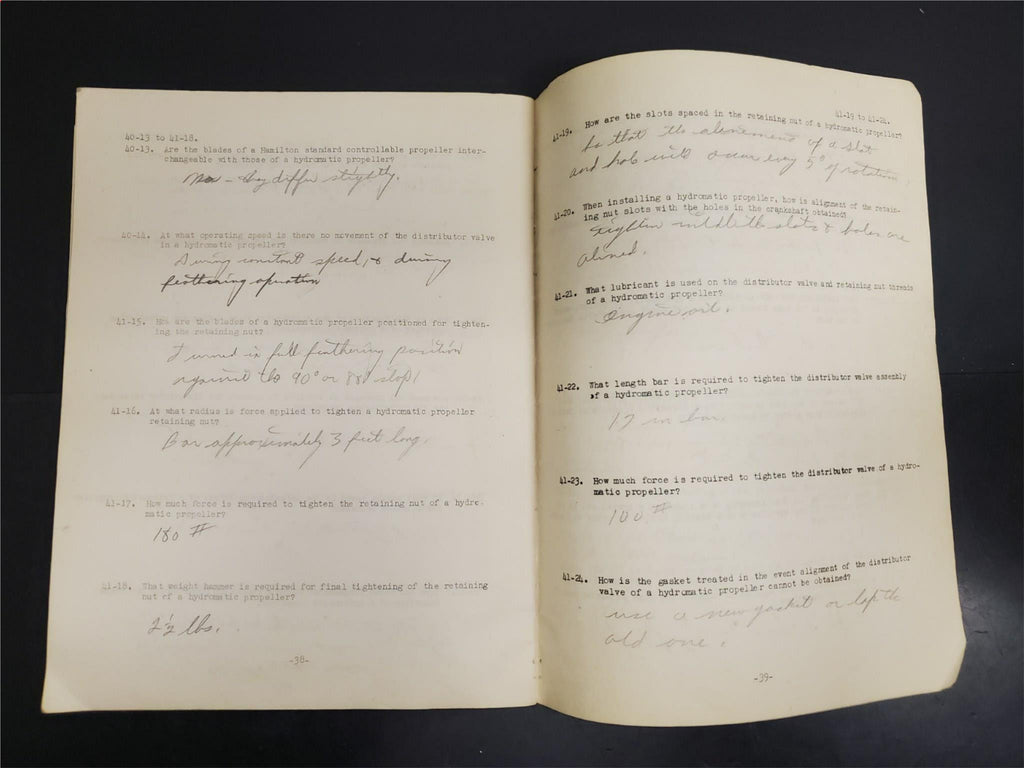 40-13 to 41-18.
40-13. Are the blades of a Hamilton standard controllable propeller inter-
changeable with those of a hydromatic propeller?
No - they differ slightly.
40-14. At what operating speed is there no movement of the distributor valve
in a hydromatic propeller?
During constant speed, & during
feathering operation
41-15. How are the blades of a hydromatic propeller positioned for tighten-
ing the retaining nut?
Turned in full feathering position
against the 90° or 88° stop
41-16. At what radius is force applied to tighten a hydromatic propeller
retaining nut?
Bar approximately 3 feet long.
41-17. How much force is required to tighten the retaining nut of a hydro-
matic propeller?
180 #
41-18. What weight hammer is required for final tightening of the retaining
nut of a hydromatic propeller?
2 1/2 lbs.
-38-
41-19 to 41-24.
41-19. How are the slots spaced in the retaining nut of a hydromatic propeller?
So that the alinement of a slot
and hole will occur every 5° of rotation.
41-20. When installing a hydromatic propeller, how is alignment of the retain-
ing nut slots with the holes in the crankshaft obtained?
Tighten until the slots & holes are
alined.
41-21. What lubricant is used on the distributor valve and retaining nut threads
of a hydromatic propeller?
Engine oil.
41-22. What length bar is required to tighten the distributor valve assembly
of a hydromatic propeller?
12 in bar.
41-23. How much force is required to tighten the distributor valve of a hydro-
matic propeller?
100 #
41-24. How is the gasket treated in the event alignment of the distributor
valve of a hydromatic propeller cannot be obtained?
use a new gasket or lap the
old one.
-39-